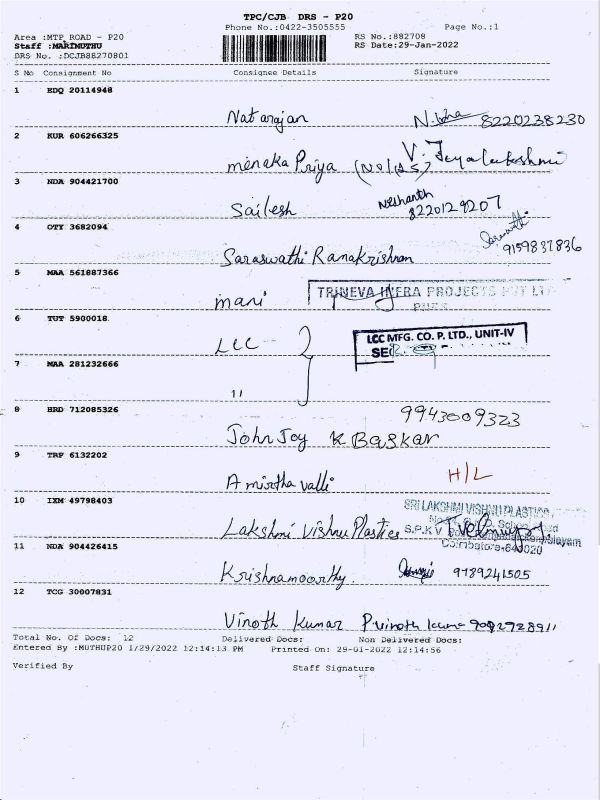 TPC/CJB DRS - P20
Phone No.:0422-3505555 Page No.:1
Area :MTP_ROAD - P20 RS No.:882708
Staff :MARIMUTHU RS Date:29-Jan-2022
DRS No. :DCJB88270801
S No Consignment No Consignee Details Signature
1 EDQ 20114948
Natarajan 8220238230
2 KUR 606266325
menaka Priya V. Jeyalakshmi
3 NDA 904421700
Sailesh Nishanth
8220129207
4 OTY 3682094
Saraswathi Ramakrishnan 9159837836
5 MAA 561887366
mani TRINEVA INFRA PROJECTS PVT LT
6 TUT 5900018
LCC LCC MFG. CO. P. LTD., UNIT-IV
7 MAA 281232666
11
8 HRD 712085326
9943009323
John Joy K Baskar
9 TRF 6132202
Amirtha valli H/L
10 IXM 49798403
Lakshmi Vishnu Plastics SRI LAKSHMI VISHNU PLASTICS
11 NDA 904426415
Krishnamoorthy. 9789241505
12 TCG 30007831
Vinoth Kumar
Total No. Of Docs: 12 Delivered Docs: Non Delivered Docs:
Entered By :MUTHUP20 1/29/2022 12:14:13 PM Printed On: 29-01-2022 12:14:56
Verified By Staff Signature